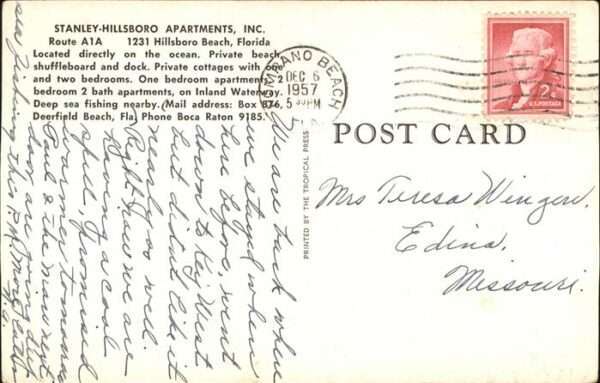 STANLEY-HILLSBORO APARTMENTS, INC.
Route A1A 1231 Hillsboro Beach, Florida
Located directly on the ocean. Private beach,
shuffleboard and dock. Private cottages with one
and two bedrooms. One bedroom apartments, 2
bedroom 2 bath apartments, on Inland Waterway.
Deep sea fishing nearby. (Mail address: Box 876,
Deerfield Beach, Fla. Phone Boca Raton 9185.
POMPANO BEACH
DEC 6
1957
5 PM
2¢
U.S. POSTAGE
POST CARD
PRINTED BY THE TROPICAL PRESS
Mrs Teresa Wingen.
Edina,
Missouri.
We are back where
we stayed when
here before, went
down to Key West
but didn't like it
nearly so well.
Right now we are
having a cool
spell, promised
warmer tomorrow
Paul & the man next
door are going
sea fishing this P.M.